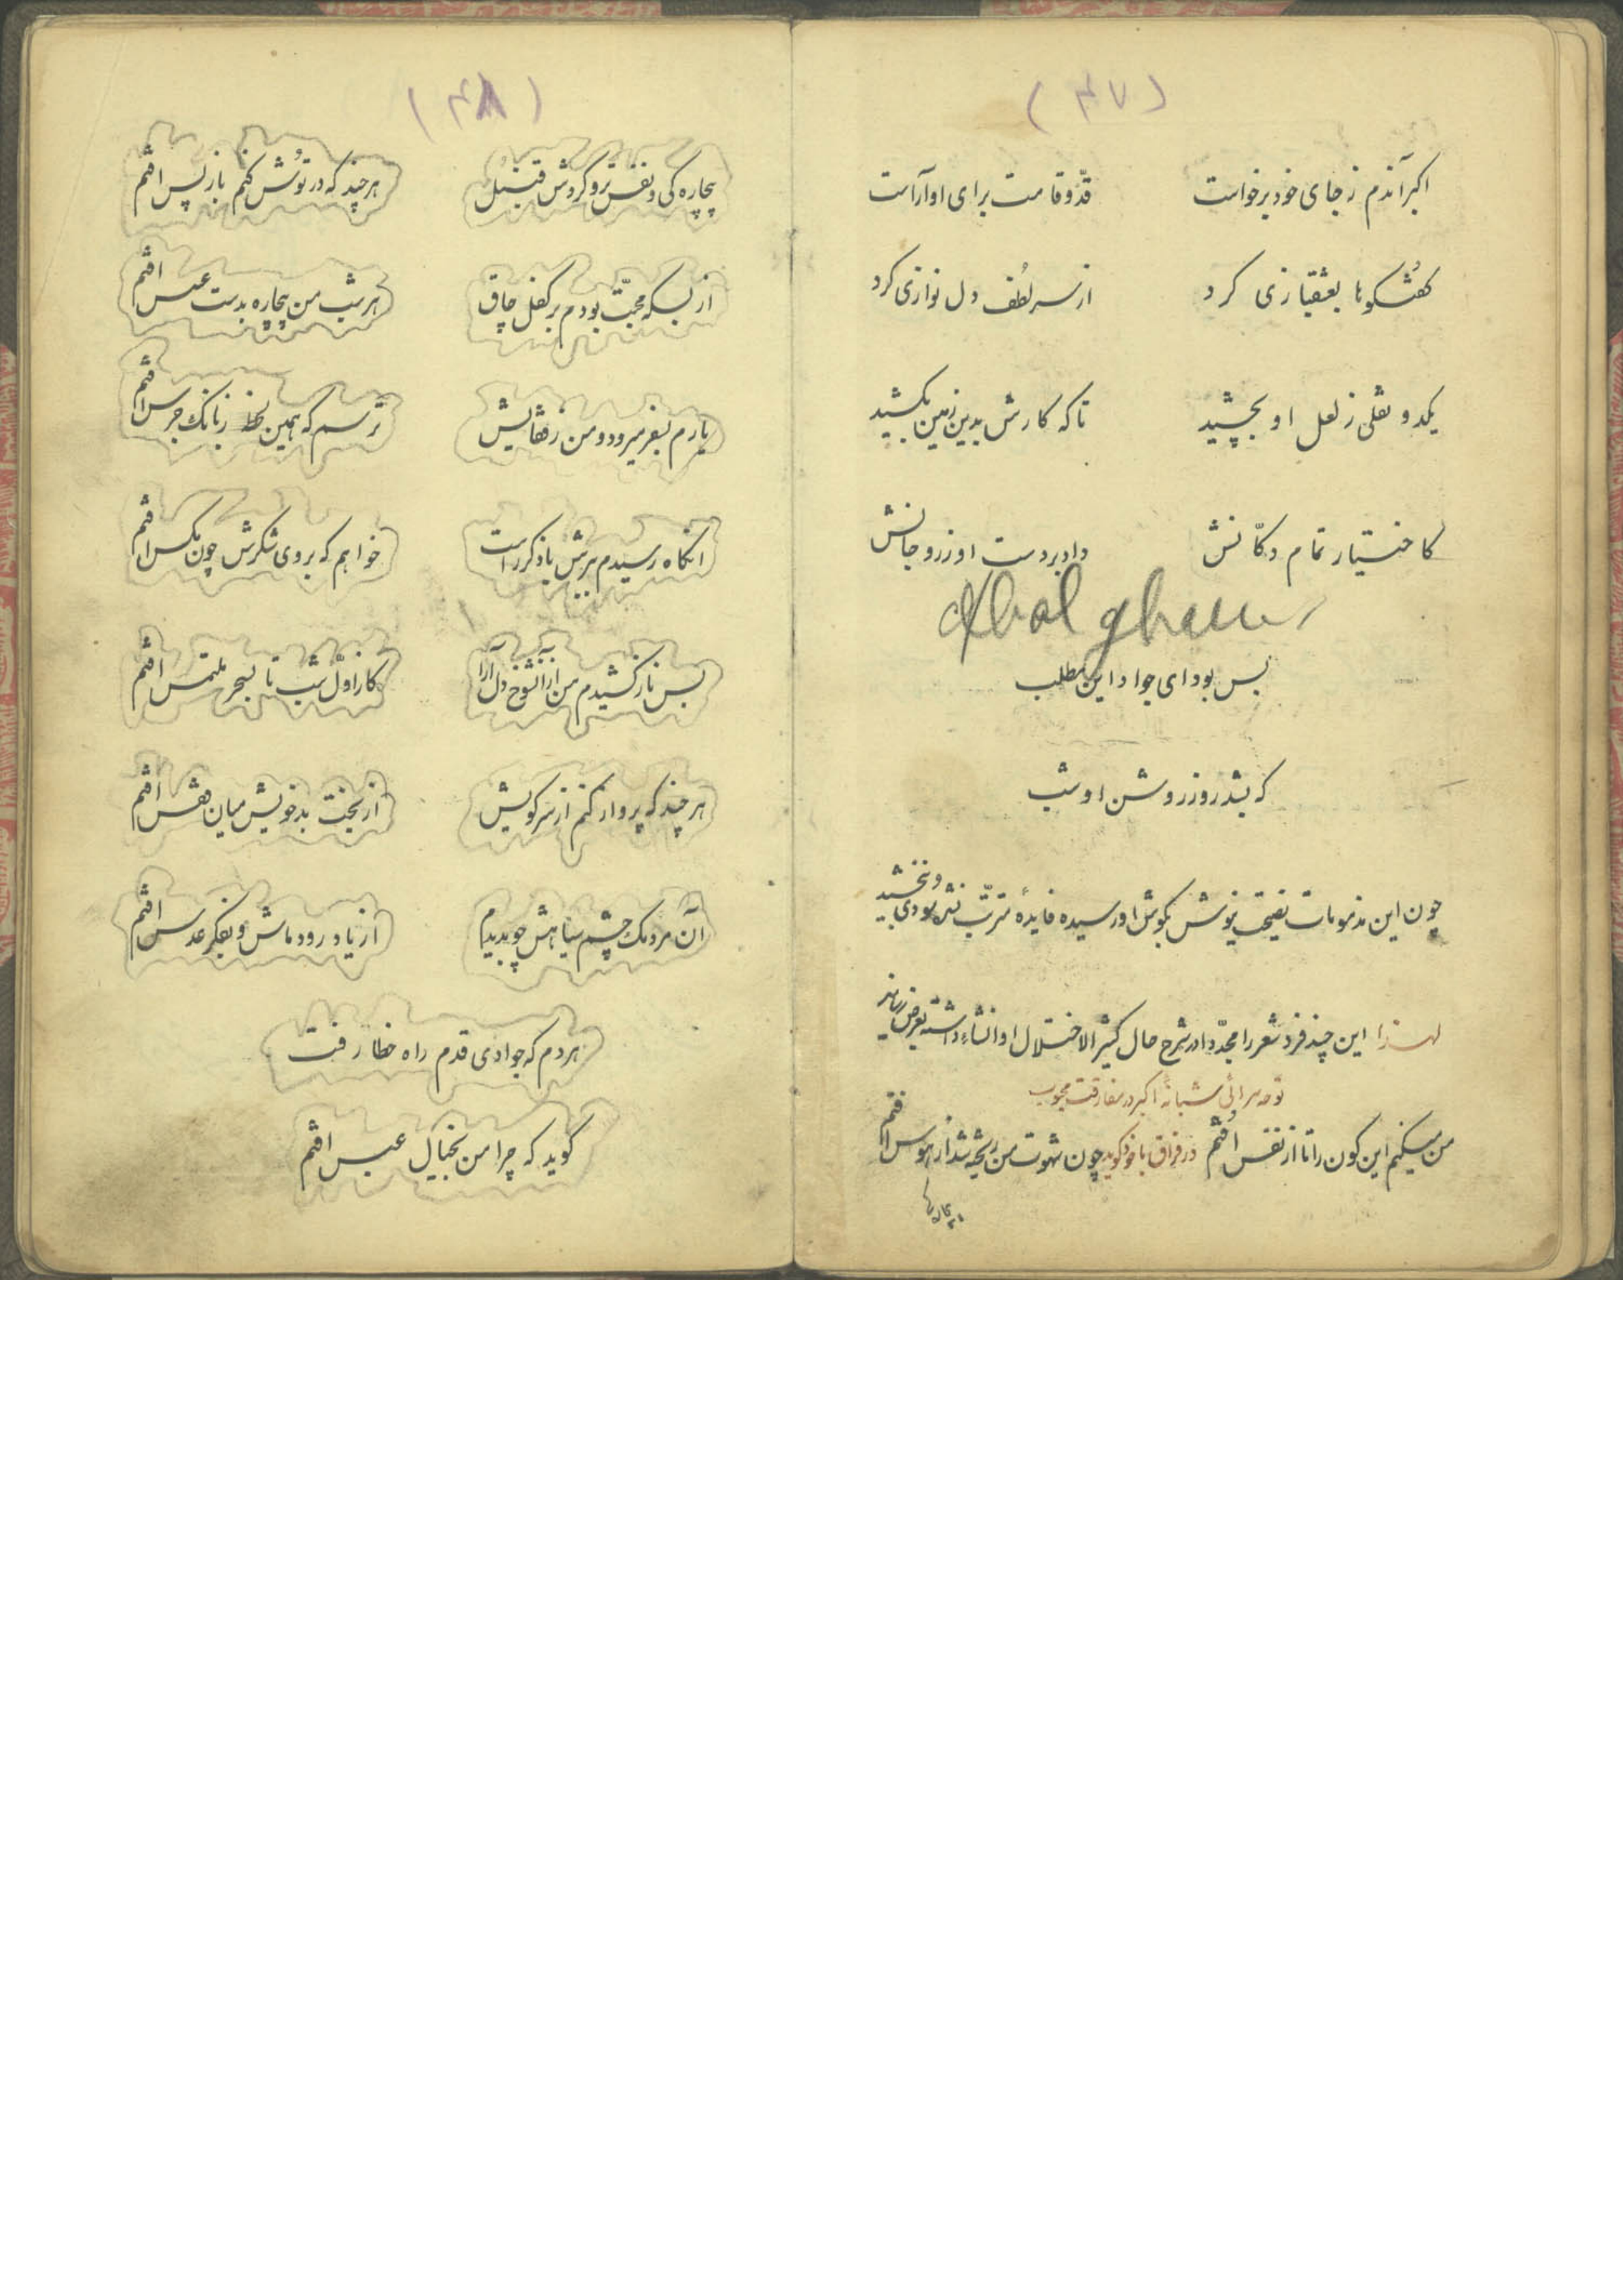 (۴۷)
اکبر آندم ز جای خود برخواست قدّ و قامت برای او آراست
گفتگوها بعشقبازی کرد از سر لُطف دل نوازی کرد
یکدو نقلی ز لعل او بچشید تا که کارش بدین زمین بکشید
کاختیار تمام دکّانش داد بر دست او زر و جانش
بس بود ای جواد این مطلب
که بشد روز روشن او شب
چون این مذمومات نصیحت نیوش بگوش او رسیده فایدهٔ مترتّب نشد سودی نبخشید
لهذا این چند فرد شعر را مجدّدا در شرح حال کثیر الاختلال او انشاء داشته بعرض رساند
نوحه سرائی شبانهٔ اکبر در مفارقت محبوب
من میکنم این کون را تا از نفس اُفتم در فراق با خود گوید چون شهوت من ریخته شد از هوس افتم
بیچاره
(۴۸)
بیچاره کی و نفس ترو کردش قنبل هر چند که در توُش کنم باز پس افتم
از بسکه محبّت بودم بر کفل چاق هر شب من بیچاره بدست عسس افتم
یارم بسفر میرود و من ز قفایش ترسم که همین لحظه ز بانک جرس افتم
آنگاه رسیدم برش یا ذکر راست خواهم که بروی شکرش چون مکس افتم
بس ناز کشیدم من از آن شوخ دل آرا کز اوّل شب تا بسحر ملتمس افتم
هر چند که پرواز کنم از سر کویش از بخت بد خویش میان قفس افتم
آن مردمک چشم سیاهش چو بدیدم از یاد رود ماش و بفکر عدس افتم
هر دم که جوادی قدم راه خطا رفت
گوید که چرا من بخیال عبس افتم